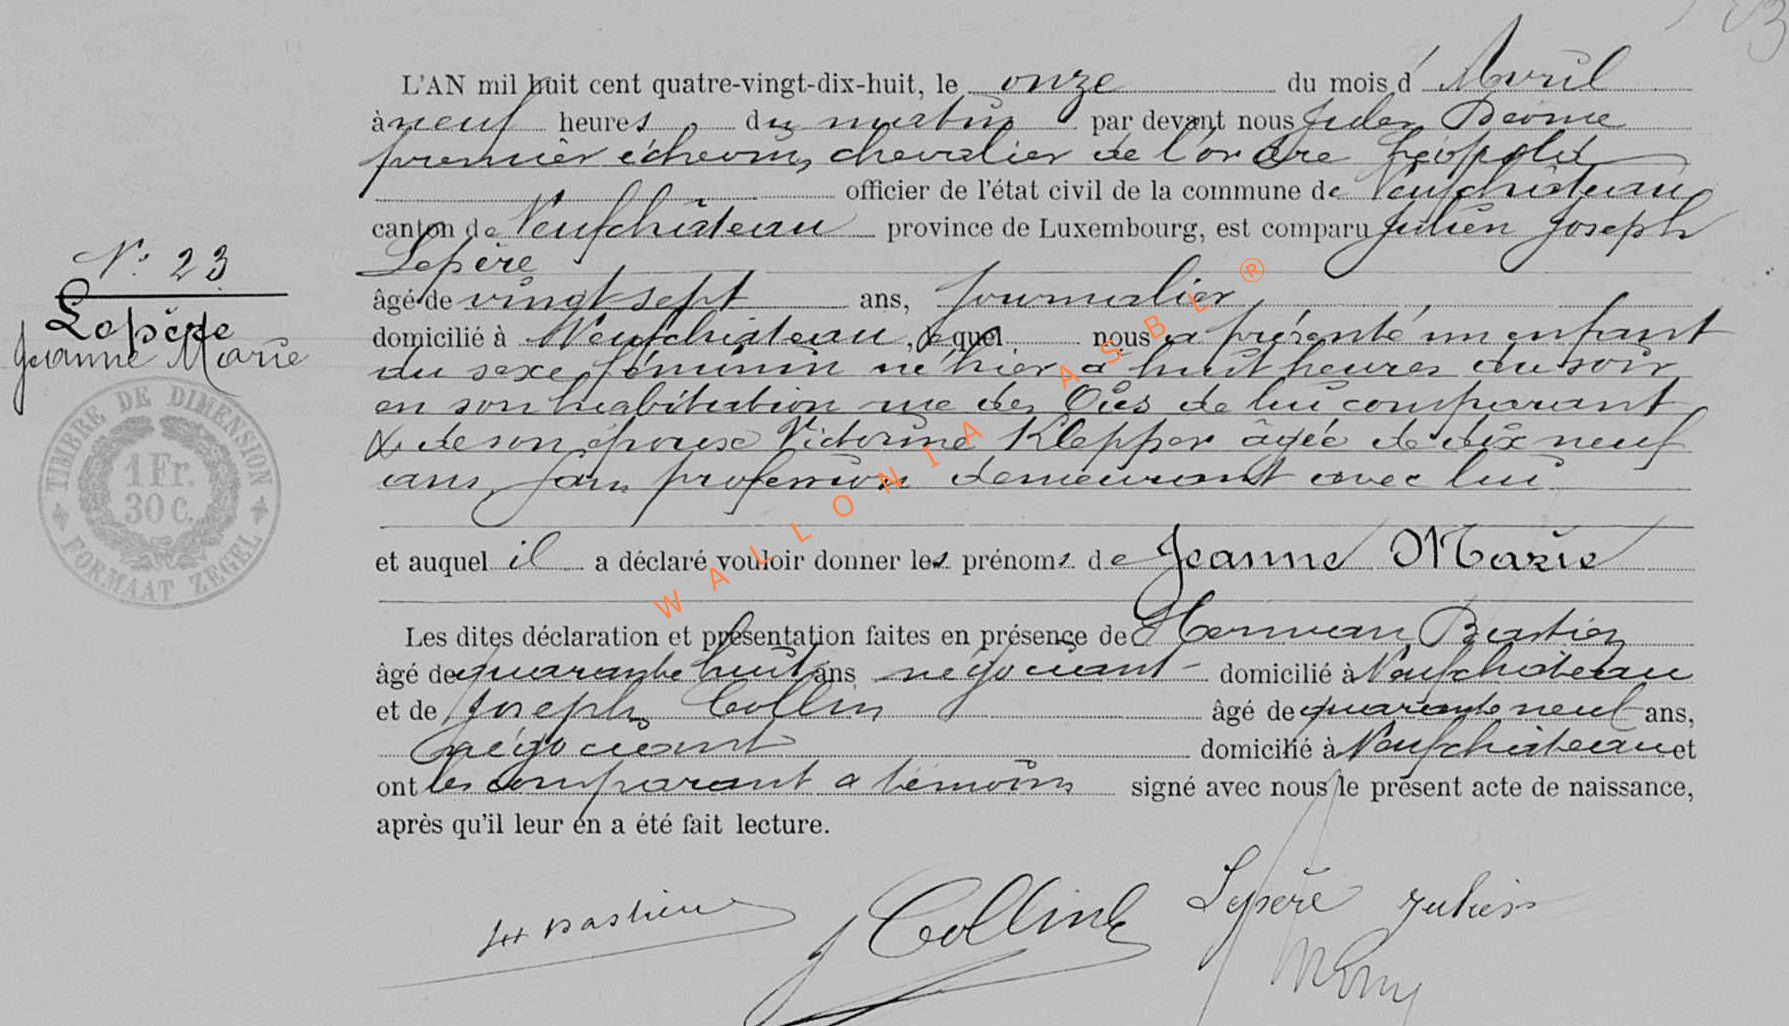 L'AN mil huit cent quatre-vingt-dix-huit, le onze du mois d'Avril
à neuf heures du matin par devant nous Jules
premier échevin, chevalier de l'ordre Léopold
officier de l'état civil de la commune de Neufchâteau
canton de Neufchâteau province de Luxembourg, est comparu Julien Joseph
Lepère
N° 23
âgé de vingt sept ans, journalier,
Lepère
domicilié à Neufchâteau, lequel nous a présenté un enfant
Jeanne Marie
du sexe féminin né hier à huit heures du soir
en son habitation rue des Oies de lui comparant
& de son épouse Victorine Klepper âgée de dix neuf
ans, sans profession demeurant avec lui
TIMBRE DE DIMENSION
1 Fr.
30 C.
FORMAAT ZEGEL
et auquel il a déclaré vouloir donner les prénoms de Jeanne Marie
Les dites déclaration et présentation faites en présence de Herman Bastien
âgé de quarante huit ans négociant domicilié à Neufchâteau
et de Joseph Collin âgé de quarante neuf ans,
négociant domicilié à Neufchâteau et
ont les comparant & témoins signé avec nous le présent acte de naissance,
après qu'il leur en a été fait lecture.
H Bastien J Collin Lepère Julien
WALLONIA ASBL ®